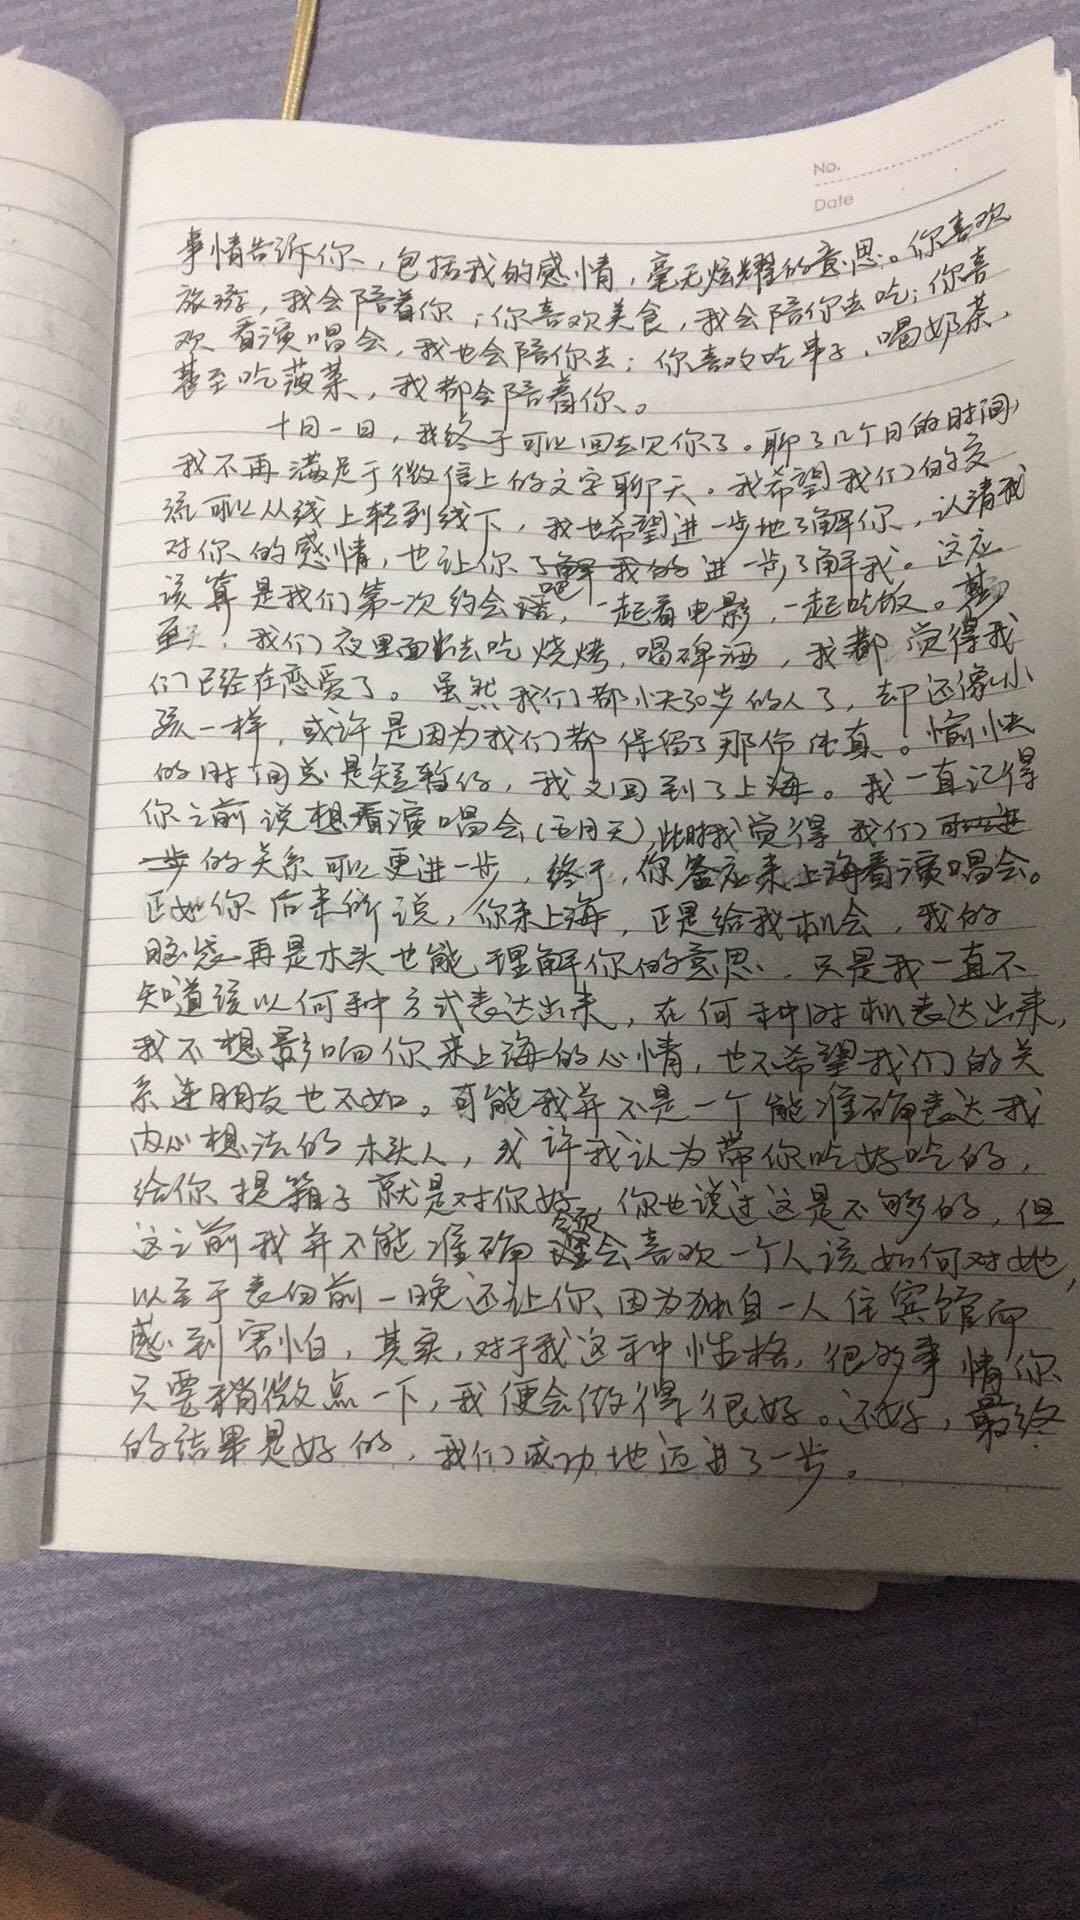 No.
Date
事情告诉你，包括我的感情，毫无炫耀的意思。你喜欢
旅游，我会陪着你；你喜欢美食，我会陪你去吃；你喜
欢看演唱会，我也会陪你去；你喜欢吃串子，喝奶茶，
甚至吃菠菜，我都会陪着你。
十月一日，我终于可以回去见你了。聊了几个月的时间，
我不再满足于微信上的文字聊天。我希望我们的交
流可以从线上转到线下，我也希望进一步地了解你，认清我
对你的感情，也让你了解我的进一步了解我。这应
该算是我们第一次约会吧，一起看电影，一起吃饭。甚
至，我们夜里面出去吃烧烤，喝啤酒，我都觉得我
们已经在恋爱了。虽然我们都快30岁的人了，却还像小
孩一样，或许是因为我们都保留了那份纯真。愉快
的时间总是短暂的，我又回到了上海。我一直记得
你之前说想看演唱会(五月天)，此时我觉得我们可以进
一步的关系可以更进一步，终于，你答应来上海看演唱会。
正如你后来所说，你来上海，正是给我机会，我的
脑袋再是木头也能理解你的意思，只是我一直不
知道该以何种方式表达出来，在何种时机表达出来，
我不想影响你来上海的心情，也不希望我们的关
系连朋友也不如。可能我并不是一个能准确表达我
内心想法的木头人，或许我认为带你吃好吃的，
给你提箱子就是对你好，你也说过这是不够的，但
这之前我并不能准确领会喜欢一个人该如何对她，
以至于表白前一晚还让你因为独自一人住宾馆而
感到害怕，其实，对于我这种性格，很多事情你
只要稍微点一下，我便会做得很好。还好，最终
的结果是好的，我们成功地迈进了一步。